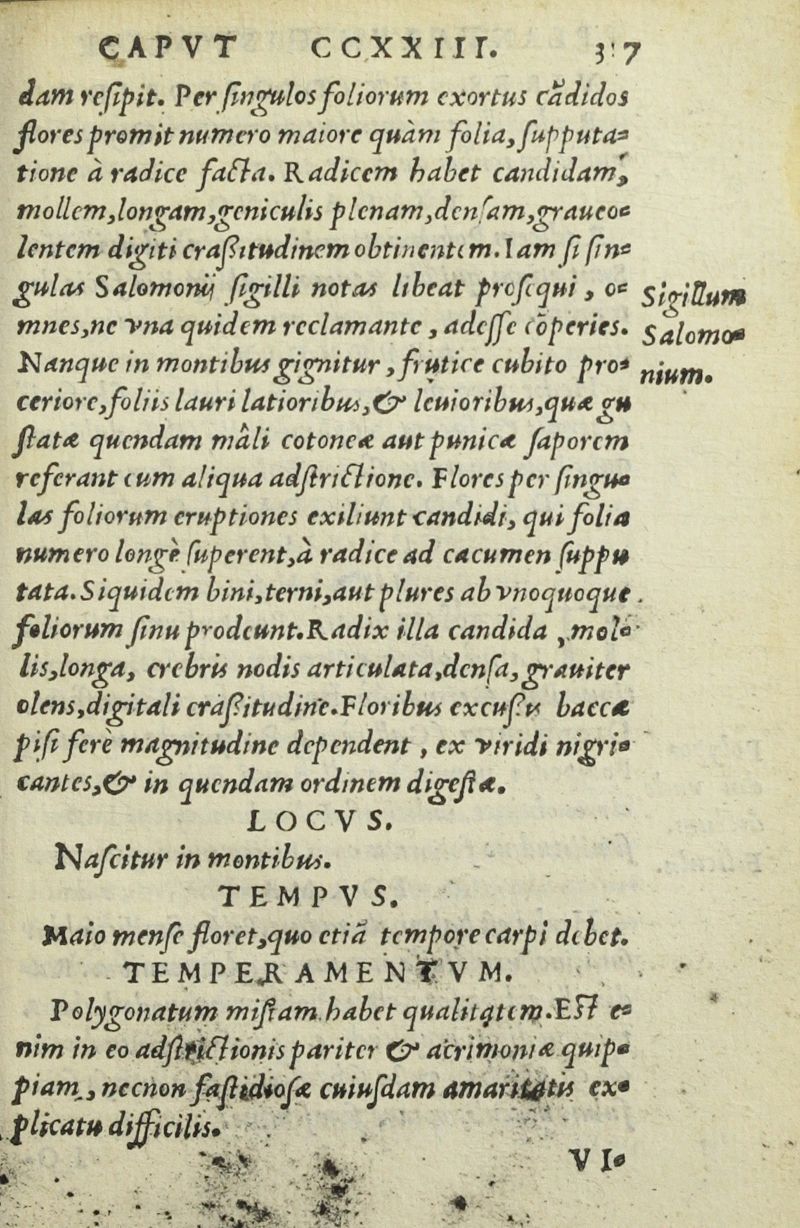 CAPVT CCXXIII. 3 7
dam resipit. Per singulos foliorum exortus cādidos
flores promit numero maiore quàm folia, supputa=
tione à radice facta. Radicem habet candidam,
mollem, longam, geniculis plenam, densam, graueo=
lentem digiti craßitudinem obtinentem. Iam si sin=
gulas Salomonij sigilli notas libeat prosequi, o=
mnes, ne vna quidem reclamante, adesse cōperies.
Sigillum
Salomo=
nium.
Nanque in montibus gignitur, frutice cubito pro=
ceriore, foliis lauri latioribus, & leuioribus, quæ gu
statæ quendam mâli cotoneæ aut punicæ saporem
referant cum aliqua adstrictione. Flores per singu=
las foliorum eruptiones exiliunt candidi, qui folia
numero longè superent, à radice ad cacumen suppu
tata. Siquidem bini, terni, aut plures ab vnoquoque
foliorum sinu prodeunt. Radix illa candida, mol=
lis, longa, crebris nodis articulata, densa, grauiter
olens, digitali craßitudine. Floribus excußis baccæ
pisi ferè magnitudine dependent, ex viridi nigri=
cantes, & in quendam ordinem digestæ.
LOCVS.
Nascitur in montibus.
TEMPVS.
Maio mense floret, quo etiā tempore carpi debet.
TEMPERAMENTVM.
Polygonatum mistam habet qualitatem. Est e=
nim in eo adstrictionis pariter & acrimoniæ quip=
piam, necnon fastidiosæ cuiusdam amaritatis ex=
plicatu difficilis.
VI=